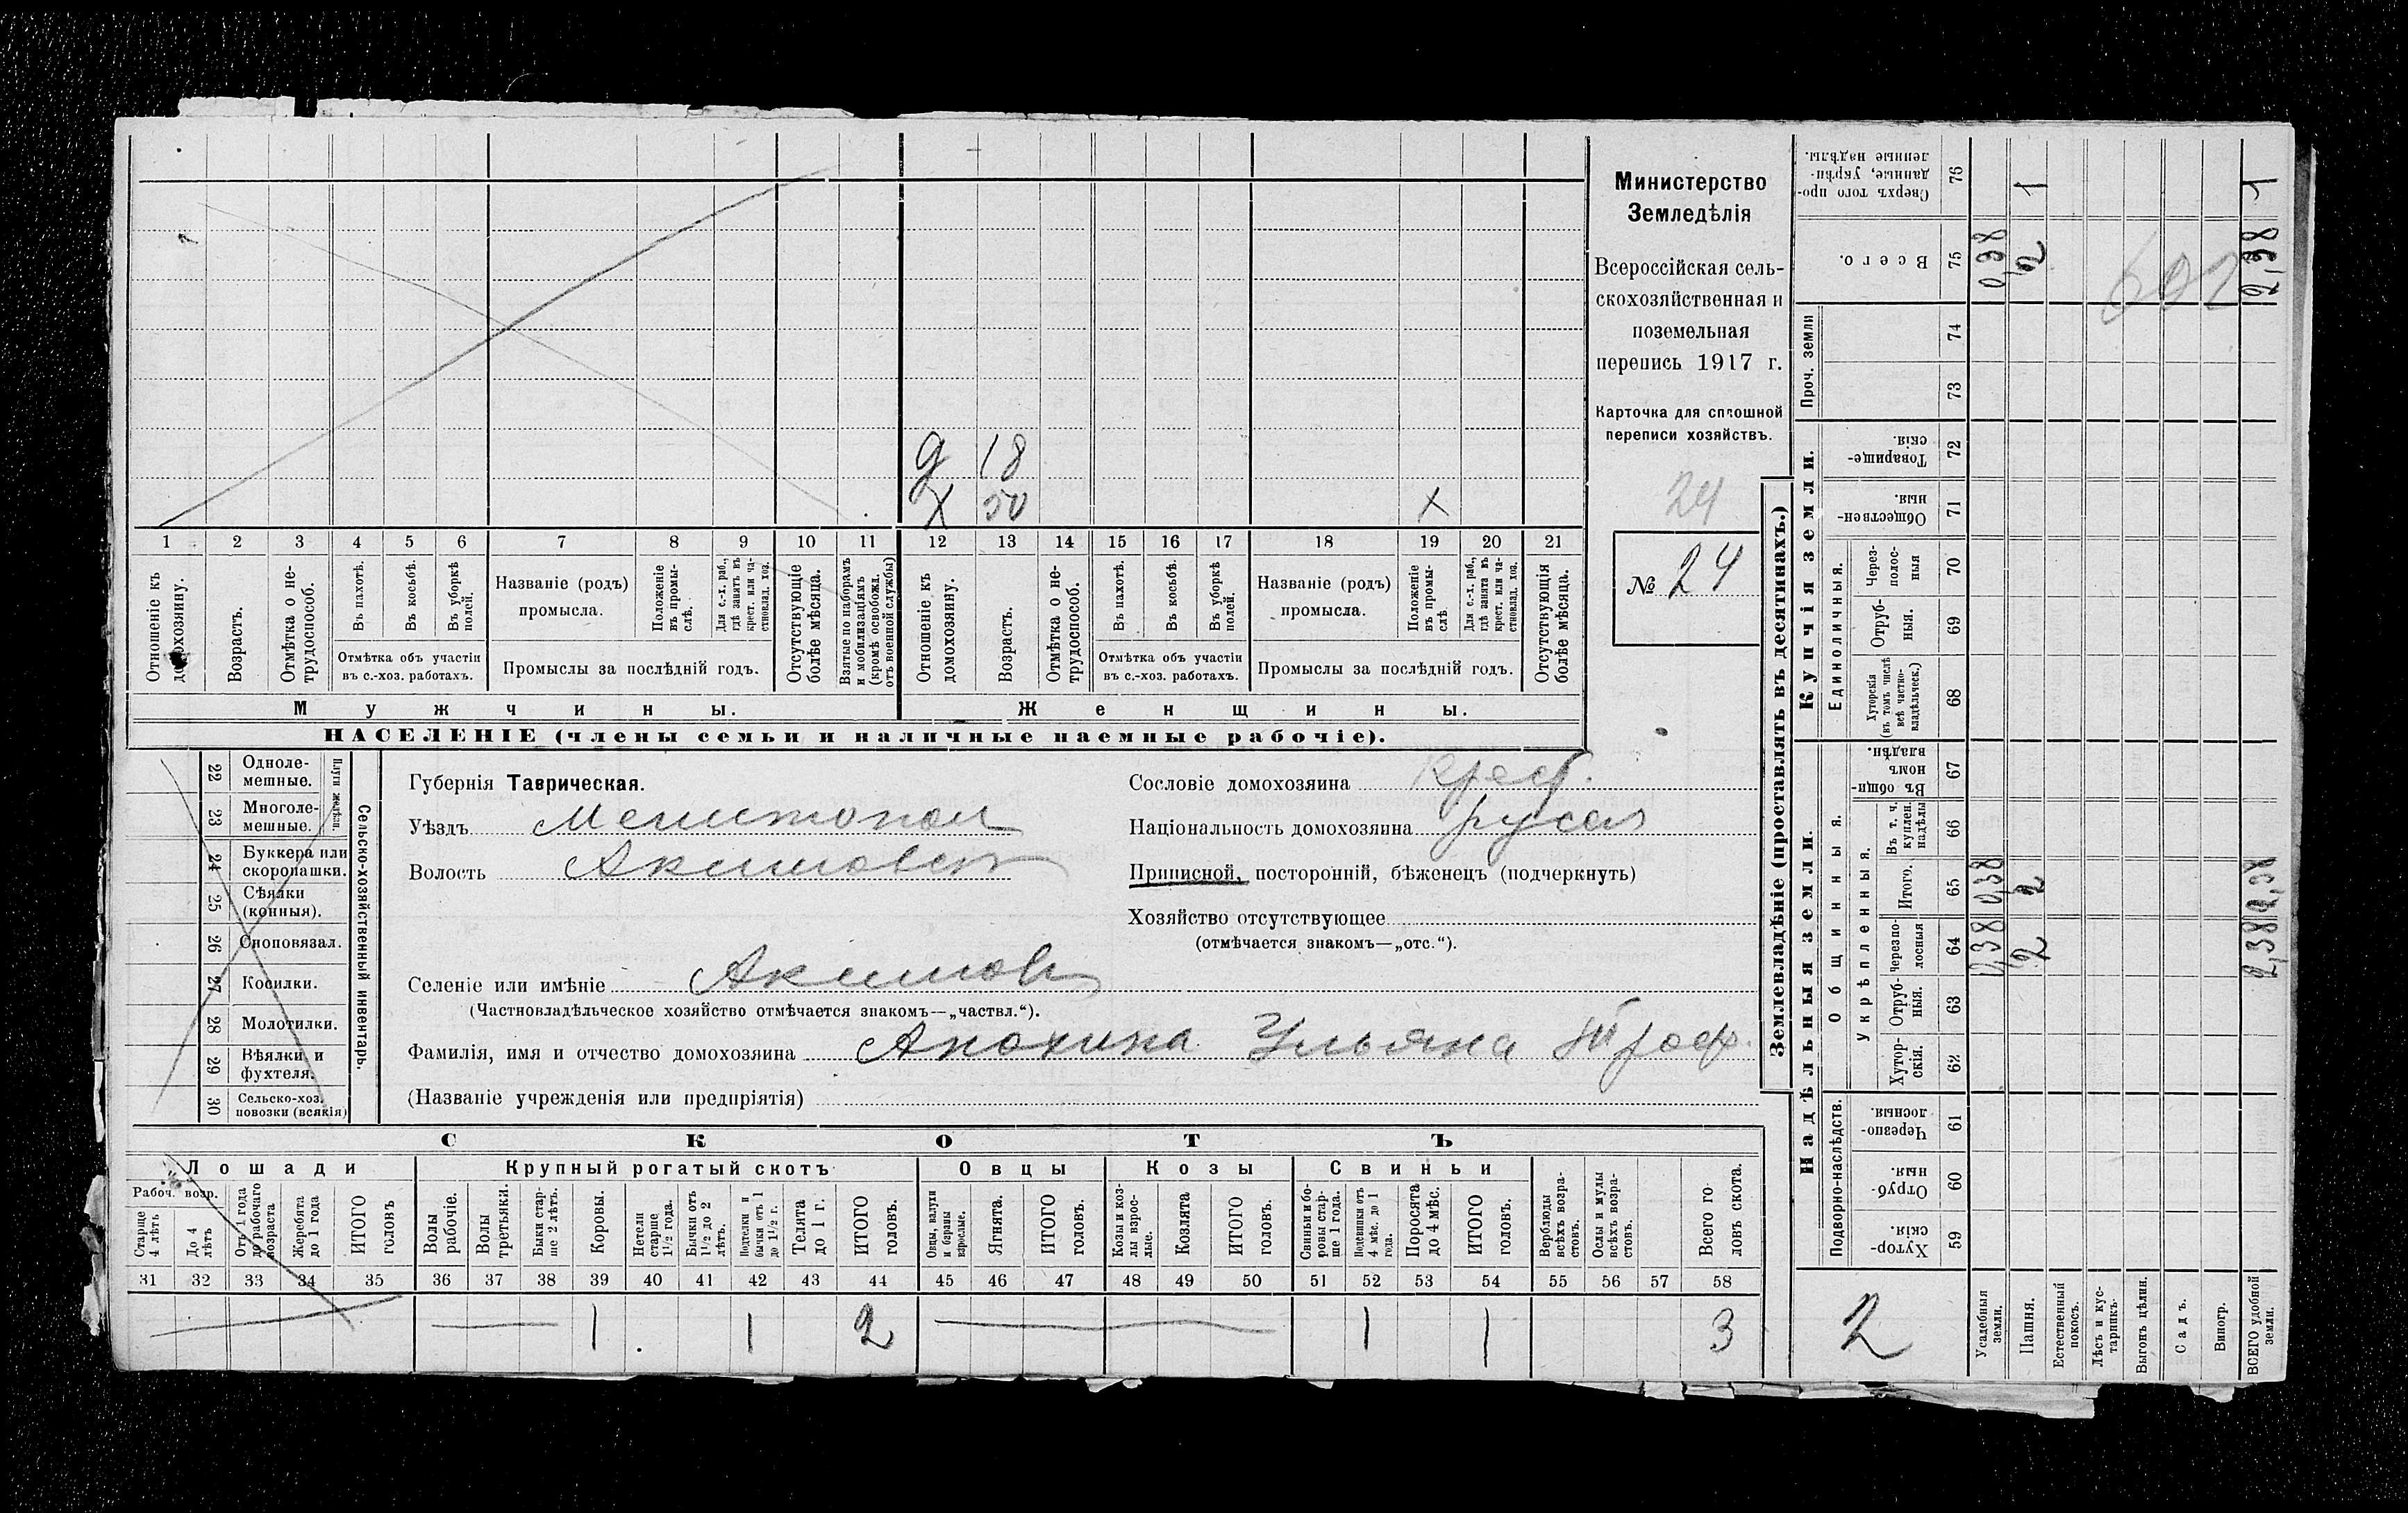 Министерство
Земледѣлія
Всероссійская сель-
скохозяйственная и
поземельная
перепись 1917 г.
Карточка для сплошной
переписи хозяйствъ.
24
№ 24
д 18
х 50 х
1 2 3 4 5 6 7 8 9 10 11 12 13 14 15 16 17 18 19 20 21
Отношеніе къ домохозяину.
Возрастъ.
Отмѣтка о не-трудоспособ.
Въ пахотѣ.
Въ косьбѣ.
Въ уборкѣ полей.
Отмѣтка объ участіи
въ с.-хоз. работахъ.
Названіе (родъ)
промысла.
Положеніе въ промы-слѣ.
Для с.-х. раб., гдѣ занятъ въ крест. или ча-стновлад. хоз.
Промыслы за послѣдній годъ.
Отсутствующіе болѣе мѣсяца.
Взятые по наборамъ и мобилизаціямъ (кромѣ освобожд. отъ военной службы)
Отношеніе къ домохозяину.
Возрастъ.
Отмѣтка о не-трудоспособ.
Въ пахотѣ.
Въ косьбѣ.
Въ уборкѣ полей.
Отмѣтка объ участіи
въ с.-хоз. работахъ.
Названіе (родъ)
промысла.
Положеніе въ промы-слѣ
Для с.-х. раб., гдѣ занята въ крест. или ча-стновлад. хоз.
Промыслы за послѣдній годъ.
Отсутствующія болѣе мѣсяца.
Мужчины. Женщины.
НАСЕЛЕНІЕ (члены семьи и наличные наемные рабочіе).
22 Одноле-мешные.
23 Многоле-мешные.
Плуги желѣзн.
24 Буккера или скоропашки.
25 Сѣялки (конныя).
26 Сноповязал.
27 Косилки.
28 Молотилки.
29 Вѣялки и фухтеля.
30 Сельско-хоз. повозки (всякія)
Сельско-хозяйственный инвентарь.
Губернія Таврическая.
Уѣздъ Мелитопол
Волость Акимовск
Селеніе или имѣніе Акимовк
(Частновладѣльческое хозяйство отмѣчается знакомъ—„частвл.“).
Фамилія, имя и отчество домохозяина Анохина Ульяна Троф.
(Названіе учрежденія или предпріятія)
Сословіе домохозяина Крест.
Національность домохозяина русск
Приписной, посторонній, бѣженецъ (подчеркнуть)
Хозяйство отсутствующее
(отмѣчается знакомъ—„отс.“).
СКОТЪ
Лошади Крупный рогатый скотъ Овцы Козы Свиньи
Рабоч. возр.
Старше 4 лѣтъ
До 4 лѣтъ
Отъ 1 года до рабочаго возраста
Жеребята до 1 года
ИТОГО головъ
Волы рабочіе.
Волы третьяки.
Быки стар-ше 2 лѣтъ.
Коровы.
Нетели старше 1½ года.
Бычки отъ 1½ до 2 лѣтъ.
Подтелки и бычки отъ 1 до 1½ г.
Телята до 1 г.
ИТОГО головъ.
Овцы, валухи и бараны взрослые.
Ягнята.
ИТОГО головъ.
Козы и коз-лы взрос-лые.
Козлята
ИТОГО головъ.
Свиньи и бо-ровы стар-ше 1 года.
Подсвинки отъ 4 мѣс. до 1 года.
Поросята до 4 мѣс.
ИТОГО головъ.
Верблюды всѣхъ возра-стовъ.
Ослы и мулы всѣхъ возра-стовъ.
Всего го-ловъ скота.
31 32 33 34 35 36 37 38 39 40 41 42 43 44 45 46 47 48 49 50 51 52 53 54 55 56 57 58
1 1 2 1 1 3
Землевладѣніе (проставлять въ десятинахъ.)
Надѣльныя земли. Купчія земли.
Подворно-наслѣдств.
Общинныя.
Укрѣпленныя.
Единоличныя.
Проч. земли
Хутор-скія. 59
Отруб-ныя. 60
Черезпо-лосныя. 61
Хутор-скія. 62
Отруб-ныя. 63
Черезпо-лосныя 64
Итого. 65
Въ т. ч. куплен. надѣлы 66
Въ общин-номъ владѣн. 67
Хуторскія (въ томъ числѣ всѣ частно-владѣльческ.) 68
Отруб-ныя. 69
Через-полос-ныя 70
Обществен-ныя. 71
Товарище-скія. 72
73
74
Всего. 75
Сверхъ того про-данные, укрѣп-ленные надѣлы. 76
2
Усадебныя земли. 0,38 0,38 0,38
Пашня. 2 2 2 1
Естественный покосъ.
Лѣсъ и кус-тарникъ.
Выгонъ цѣлин.
Садъ.
Виногр.
ВСЕГО удобной земли. 2,38 2,38 2,38 1